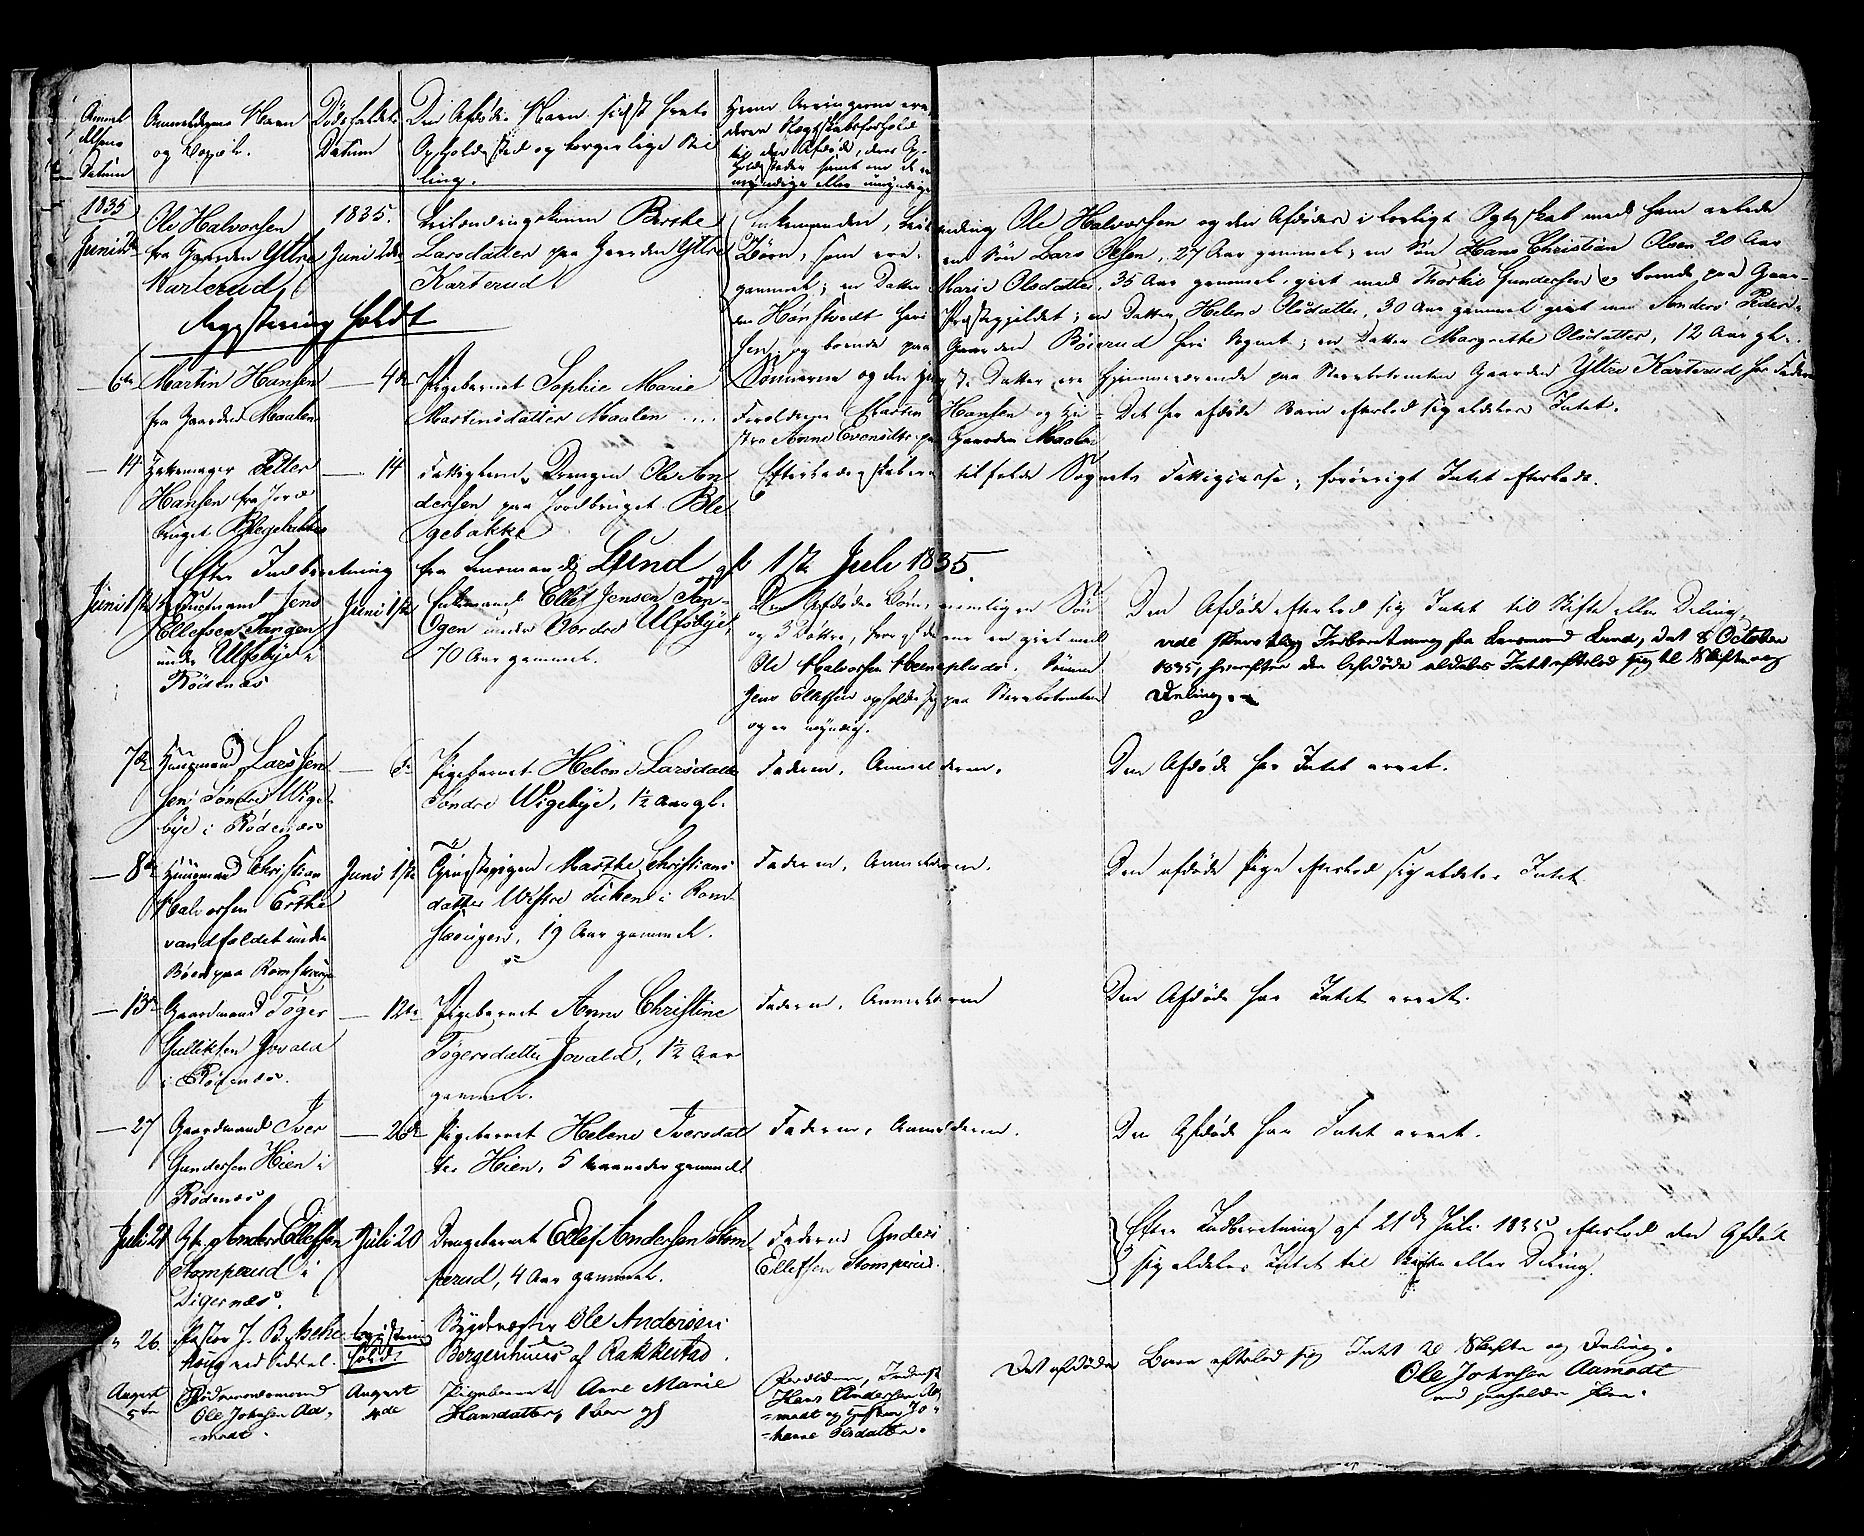 Anmeldelsens Datum
Anmelderens Navn og Bopæl.
Dødsfaldets Datum
Den Afdødes Navn sidst havte Opholdssted og borgerlige Stilling.
Hvem Arvingerne ere, deres Slægtskabsforhold til den Afdøde, deres Opholdssteder samt om de ere myndige eller umyndige
1835
Juni 2de
Ole Halvorsen
fra Gaarden Yttre
Karterud
1835.
Juni 2de
Leilændingskonen Berthe
Larsdatter paa Gaarden Yttre
Karterud
Enkemanden, Leilænding Ole Halvorsen og den Afdødes i lovligt Egteskab med ham avlede
Børn, som ere: en Søn Lars Olsen, 27 Aar gammel; en Søn Hans Christian Olsen 20 Aar
gammel; en Datter Marie Olsdatter, 35 Aar gammel, givt med Thorkil Gundersen og boende paa Gaar-
den Hanstvedt heri Præstegjeldet; en Datter Helene Olsdatter, 30 Aar gammel givt med Anders Peder-
sen og boende paa Gaarden Böierud heri Sognet; en Datter Margrethe Olsdatter, 12 Aar gl.
Sønnerne og den yngste Datter ere hjemmeværende paa Stervbotomten Gaarden Yttre Karterud hos Faderen
Registrering holdt
— 6te
Martin Hansen
fra Gaarden Maalen
— 4de
Pigebarnet Sophie Marie
Martinsdatter Maalen
Forældrene Martin Hansen og Hu-
stru Anne Evensdtr. paa Gaarden Maalen
Det her afdøde Barn efterlod sig aldeles Intet.
— 14
Hattemager Petter
Hansen fra Jord-
bruget Blegebakke
— 14
Fattiglem, Drengen Ole An-
dersen paa Jordbruget Ble-
gebakke
Efterladenskaberne tilfalde Sognets Fattigcasse; forøvrigt Intet efterlade.
Efter Indberetning fra Lensmand Lund af 1ste Juli 1835.
Juni 1ste
Huusmand Jens
Ellefsen Tangen
under Ulfsbye i
Rødenæs
Juni 1ste
Enkemand Ellef Jensen Tan-
gen under Nordre Ulfsbye,
70 Aar gammel.
Den Afdødes Børn, nemlig en Søn
og 3 Døttre, hvoraf den ene er givt med
Ole Halvorsen Heenspladsen. Sønnen
Jens Ellefsen opholder sig paa Stervbotomten
og er myndig.
Den Afdøde efterlod sig Intet til Skifte eller Deling
vide skriftlig Indberetning fra Lensmand Lund, dat 8 October
1835, hvorefter den Afdøde aldeles Intet efterlod sig til Skifte og
Deling.
7de
Huusmand Lars Jen-
sen Søndre Wige-
bye i Rødenæs
— 6te
Pigebarnet Helene Larsdatter
Søndre Wigebye, 1½ Aar gl.
Faderen, Anmelderen.
Den Afdøde har Intet arvet.
— 8de
Huusmand Christian
Halvorsen Erthe-
vandfaldet under
Bøen paa Romskougen
Juni 1ste
Tjenestepigen Marthe Christians-
datter Westre Tukun i Rom-
skougen, 19 Aar gammel.
Faderen, Anmelderen.
Den afdøde Pige efterlod sig aldeles Intet
— 13de
Gaardmand Tøger
Gulliksen Jovald
i Rødenæs.
— 12te
Pigebarnet Anne Christine
Tøgersdatter Jovald, 1½ Aar
gammel.
Faderen, Anmelderen
Den Afdøde har Intet arvet.
— 27
Gaardmand Iver
Gundersen Hien i
Rødenæs
— 26de
Pigebarnet Helene Iversdat-
ter Hien, 5 Maaneder gammel
Faderen, Anmelderen.
Den Afdøde har Intet arvet.
Juli 21
Gbr. Anders Ellefsen
Stomperud i
Digernæs.
Juli 20
Drengebarnet Ellef Andersen Stom-
perud, 4 Aar gammel.
Faderen Anders
Ellefsen Stomperud.
Efter Indberetning af 21de Juli 1835 efterlod den Afdøde
sig aldeles Intet til Skifte eller Deling.
" 26.
Pastor J. B.
Registrering
holdt.
Bygdevægter Ole Andersen
Bergenhuus af Rakkestad.
August
5te
Rødenæsmand
Ole Johnsen Aa-
modt.
August
4de
Pigebarnet Anne Marie
Hansdatter, 1 Aar gl
Forældrene, Inderst
Hans Andersen Aa-
modt og Hustrue Jo-
hanne Olsdatter.
Det afdøde Barn efterlod sig Intet til Skifte og Deling.
Ole Johnsen Aamodt
med paaholden Pen.